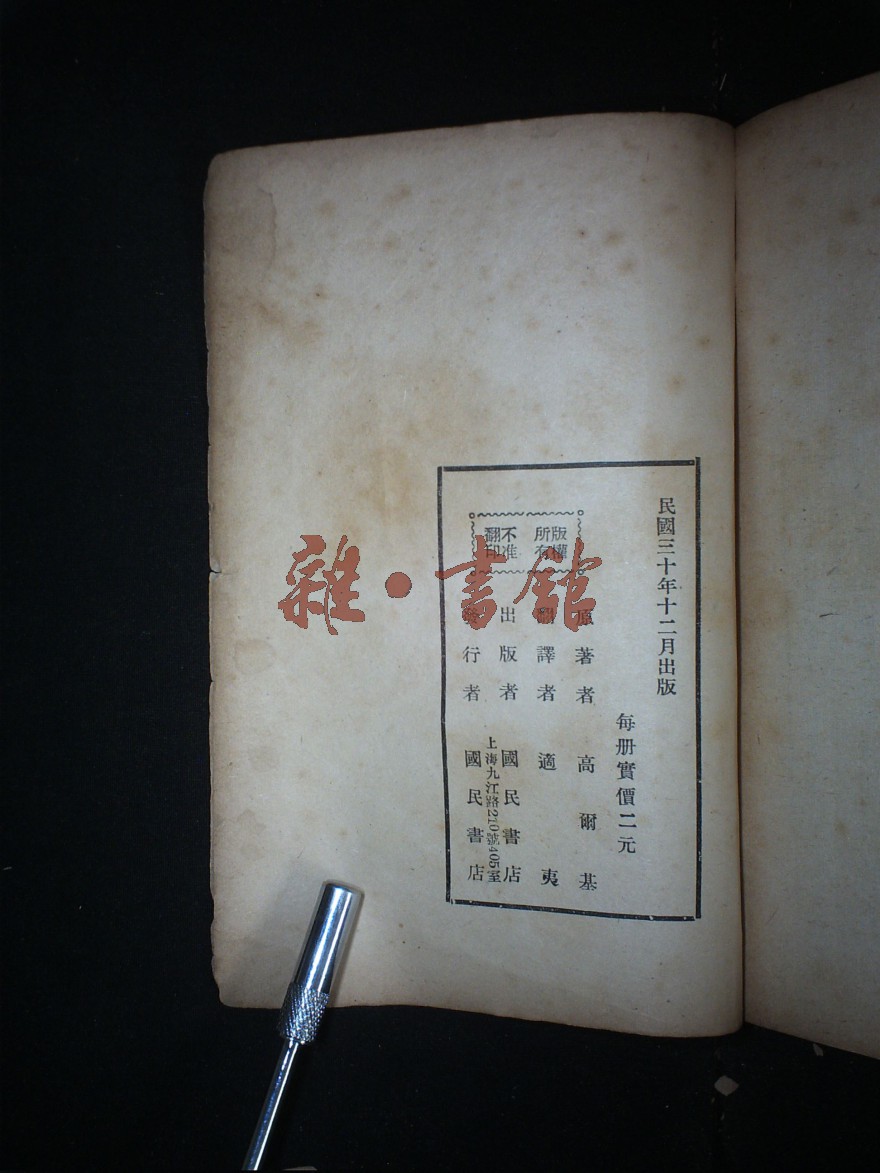 民國三十年十二月出版
每册實價二元
原著者 高爾基
翻譯者 適夷
出版者 國民書店
上海九江路210號405室
發行者 國民書店
版權所有
不准翻印
雜·書館